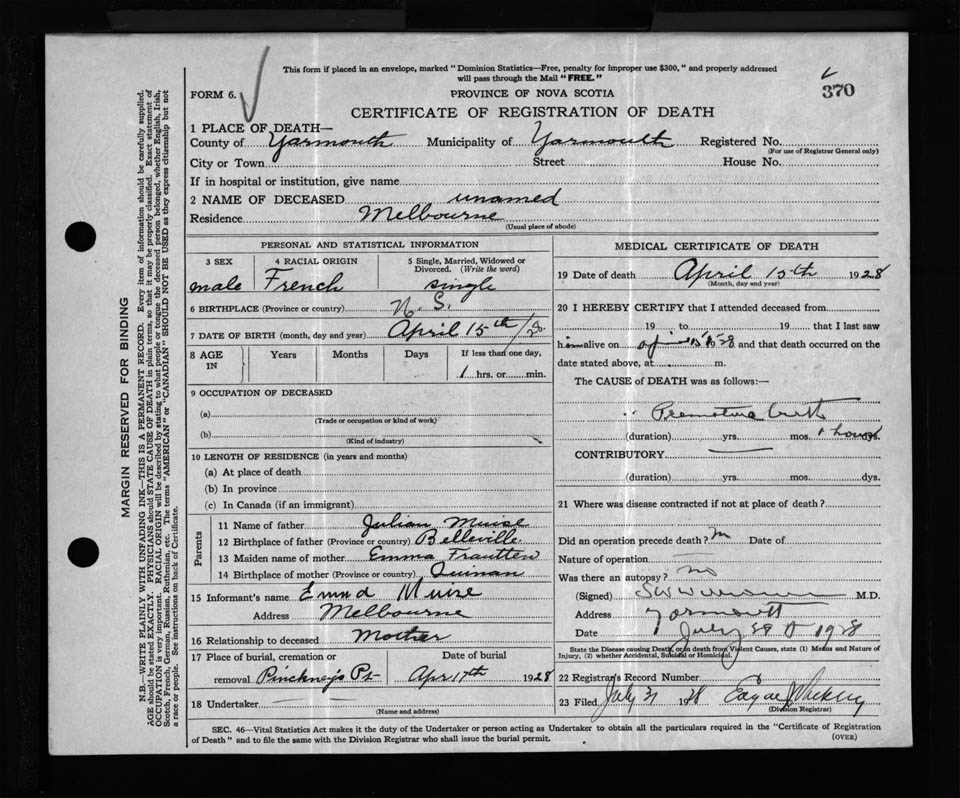 This form if placed in an envelope, marked "Dominion Statistics—Free, penalty for improper use $300," and properly addressed
will pass through the Mail "FREE."
FORM 6.
PROVINCE OF NOVA SCOTIA
370
CERTIFICATE OF REGISTRATION OF DEATH
1 PLACE OF DEATH—
County of Yarmouth Municipality of Yarmouth Registered No.
(For use of Registrar General only)
City or Town Street House No.
If in hospital or institution, give name
2 NAME OF DECEASED unamed
Residence Melbourne
(Usual place of abode)
PERSONAL AND STATISTICAL INFORMATION
3 SEX 4 RACIAL ORIGIN 5 Single, Married, Widowed or
Divorced. (Write the word)
male French single
6 BIRTHPLACE (Province or country) N. S.
7 DATE OF BIRTH (month, day and year) April 15th /28.
8 AGE IN Years Months Days If less than one day,
1 hrs. or min.
9 OCCUPATION OF DECEASED
(a)
(Trade or occupation or kind of work)
(b)
(Kind of industry)
10 LENGTH OF RESIDENCE (in years and months)
(a) At place of death
(b) In province
(c) In Canada (if an immigrant)
Parents
11 Name of father Julian Muise
12 Birthplace of father (Province or country) Belleville
13 Maiden name of mother Emma
14 Birthplace of mother (Province or country) Quinan
15 Informant's name Muise
Address Melbourne
16 Relationship to deceased Mother
17 Place of burial, cremation or Date of burial
removal Pinckney's Pt Apr 17th 1928
18 Undertaker
(Name and address)
MEDICAL CERTIFICATE OF DEATH
19 Date of death April 15th 1928
(Month, day and year)
20 I HEREBY CERTIFY that I attended deceased from
19 to 19 that I last saw
him alive on and that death occurred on the
date stated above, at m.
The CAUSE of DEATH was as follows:—
Premature birth
(duration) yrs. mos. 1 hour dys.
CONTRIBUTORY
(duration) yrs. mos. dys.
21 Where was disease contracted if not at place of death?
Did an operation precede death? Date of
Nature of operation
Was there an autopsy? no
(Signed) M.D.
Address Yarmouth
Date July 1928
State the Disease causing Death, or in death from Violent Causes, state (1) Means and Nature of
Injury, (2) whether Accidental, Suicidal or Homicidal.
22 Registrar's Record Number
23 Filed, July 31 1928 Edgar
(Division Registrar)
SEC. 46—Vital Statistics Act makes it the duty of the Undertaker or person acting as Undertaker to obtain all the particulars required in the "Certificate of Registration
of Death" and to file the same with the Division Registrar who shall issue the burial permit.
(OVER)
MARGIN RESERVED FOR BINDING
N.B.—WRITE PLAINLY WITH UNFADING INK—THIS IS A PERMANENT RECORD. Every item of information should be carefully supplied.
AGE should be stated EXACTLY. PHYSICIANS should STATE CAUSE OF DEATH in plain terms, so that it may be properly classified. Exact statement of
OCCUPATION is very important. RACIAL ORIGIN will be described by stating to what people or tongue the deceased person belonged, whether English, Irish,
Scotch, French, German, Russian, Ruthenian, etc. The terms "AMERICAN" or "CANADIAN" SHOULD NOT BE USED as they express citizenship but not
a race or people. See instructions on back of Certificate.